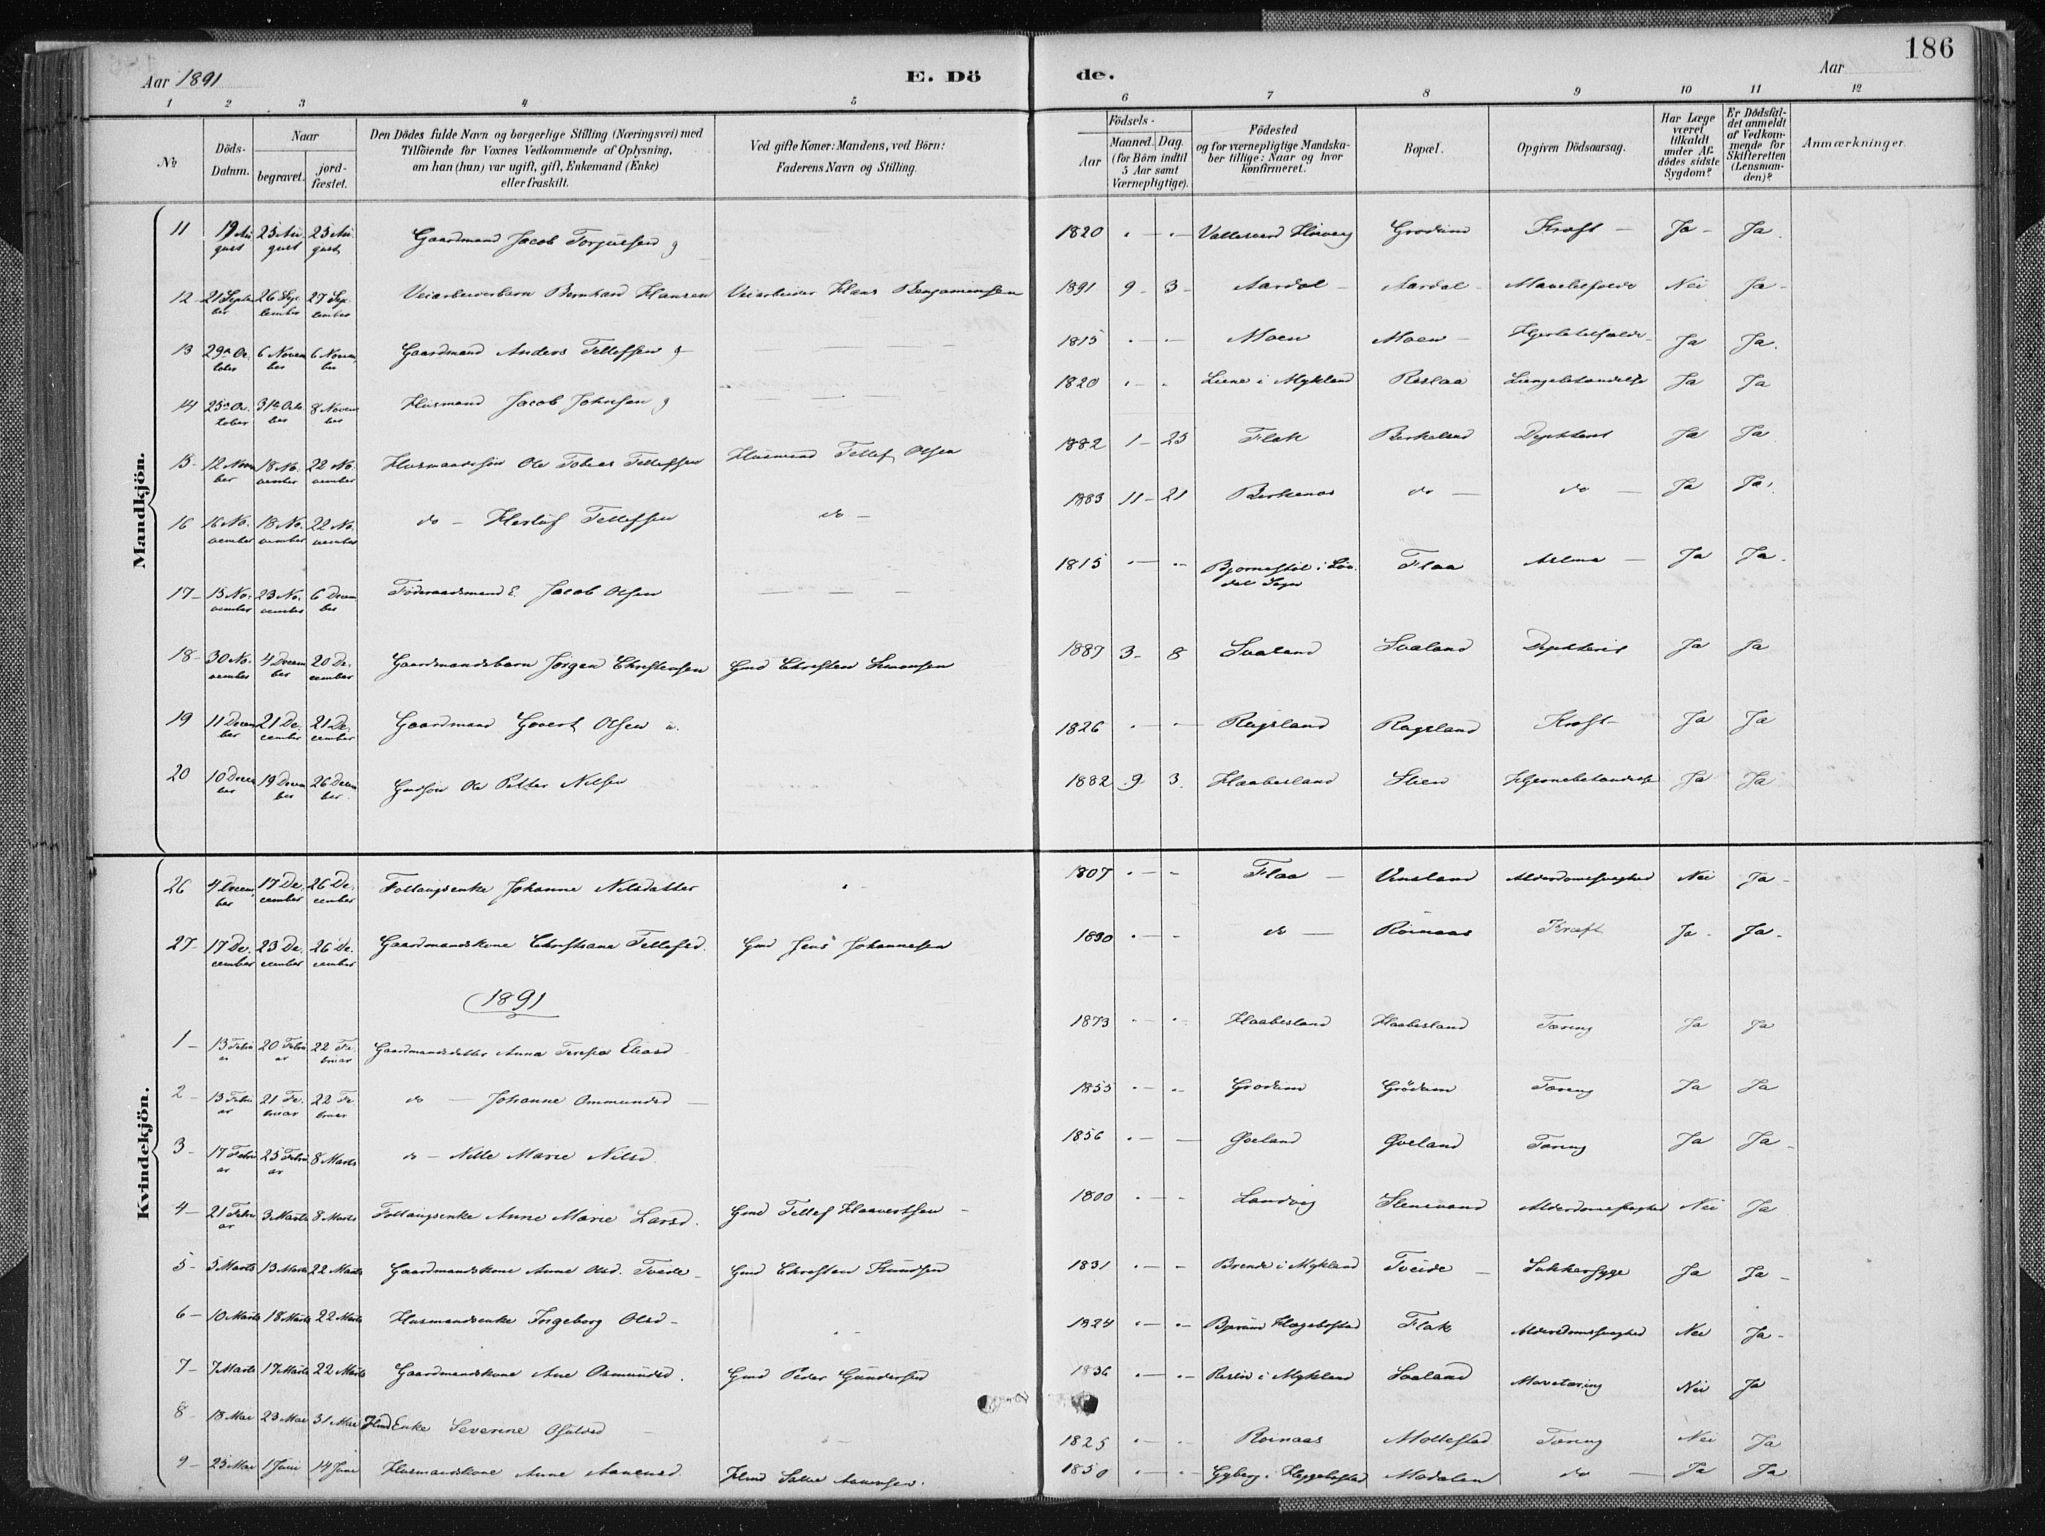 186
Aar 1891
E. Dö
de.
Aar
1 2 3 4 5 6 7 8 9 10 11 12
№
Döds-Datum.
Naar
begravet.
jord-fæstet.
Den Dödes fulde Navn og borgerlige Stilling (Næringsvei) med
Tilföiende for Voxnes Vedkommende af Oplysning,
om han (hun) var ugift, gift, Enkemand (Enke)
eller fraskilt.
Ved gifte Koner: Mandens, ved Börn:
Faderens Navn og Stilling.
Födsels-
Aar
Maaned. Dag.
(for Börn indtil
5 Aar samt
Værnepligtige).
Födested
og for værnepligtige Mandska-
ber tillige: Naar og hvor
konfirmeret.
Bopæl.
Opgiven Dödsaarsag.
Har Læge
været
tilkaldt
under Af-
dödes sidste
Sygdom?
Er Dödsfal-
det anmeldt
af Vedkom-
mende for
Skifteretten
(Lensman-
den)?
Anmærkninger.
Mandkjön.
11 19 August 25 August 23 August Gaardmand Jacob Torjusen g 1820 Grödum Kræft Ja Ja
12 21 September 26 September 27 September Veiarbeiderbarn Bernhard Hansen Veiarbeider Hans Benjaminsen 1891 9 3 Aardal Aardal Nei Ja
13 29de October 6 November 6 November Gaardmand Anders Tellefsen g 1815 Moen Moen Ja Ja
14 25de October 31te October 8 November Husmand Jacob Johnsen g 1820 Liene i Mykland Reslaa Lungebetændelse Ja Ja
15 12 November 18 November 22 November Husmandssön Ole Tobias Tellefsen Husmand Tellef Olsen 1882 1 25 Flak Birkeland Dyphterit Ja Ja
16 16 November 18 November 22 November do Herluf Tellefsen do 1883 11 21 Birkenes do do Ja Ja
17 15 November 23 November 6 December Föderaadsmand E. Jacob Olsen 1815 Flaa Astma Ja Ja
18 30 November 4 December 20 December Gaardmandsbarn Jörgen Christensen Gmd Christen Simonsen 1887 3 8 Svaland Svaland Dyphterit Ja Ja
19 11 December 21 December 21 December Gaardmand Govert Olsen u. 1826 Rugsland Rugsland Kræft Ja Ja
20 10 December 19 December 26 December Gmdsön Ole Petter Nilsen 1882 9 3 Haabesland Stien Hjernebetændelse Ja Ja
Kvindekjön.
26 4 December 17 December 26 December Fattigenke Johanne Nilsdatter 1807 Flaa Vinsland Alderdomssvaghed Nei Ja
27 17 December 23 December 26 December Gaardmandskone Christiane Tellefsd. Gmd Jens Johannesen 1830 do Röinaas Kræft Ja Ja
1891
1 13 Februar 20 Februar 22 Februar Gaardmandsdatter Anna Teresia Eliasd 1873 Haabesland Haabesland Tæring Ja Ja
2 13 Februar 21 Februar 22 Februar do Johanne Ommundsd 1855 Grödum Grödum Tæring Ja Ja
3 17 Februar 25 Februar 8 Marts do Nille Marie Nilsd. 1856 Oveland Oveland Tæring Ja Ja
4 21 Februar 3 Marts 8 Marts Fattigenke Anne Marie Larsd. Gmd Tellef Haavertsen 1800 Landvig Stensvand Alderdomssvaghed Nei Ja
5 3 Marts 13 Marts 22 Marts Gaardmandskone Anne Olsd. Tveide Gmd Christen Knudsen 1831 Brende i Mykland Tveide Sukkersyge Ja Ja
6 10 Marts 18 Marts 22 Marts Husmandsenke Ingeborg Olsd 1824 Hægebostad Flak Alderdomssvaghed Nei Ja
7 7 Marts 17 Marts 22 Marts Gaardmandskone Ane Osmundsd. Gmd Peder Gundersen 1836 i Mykland Svaland Mavetæring Nei Ja
8 18 Mai 23 Mai 31 Mai Hmd Enke Severine 1825 Roinaas Mollestad Tæring Nei Ja
9 23 Mai 1 Juni 14 Juni Husmandskone Anne Aanensd. Hmd 1850 Gyberg i Heggebostad Modalen do Ja Ja